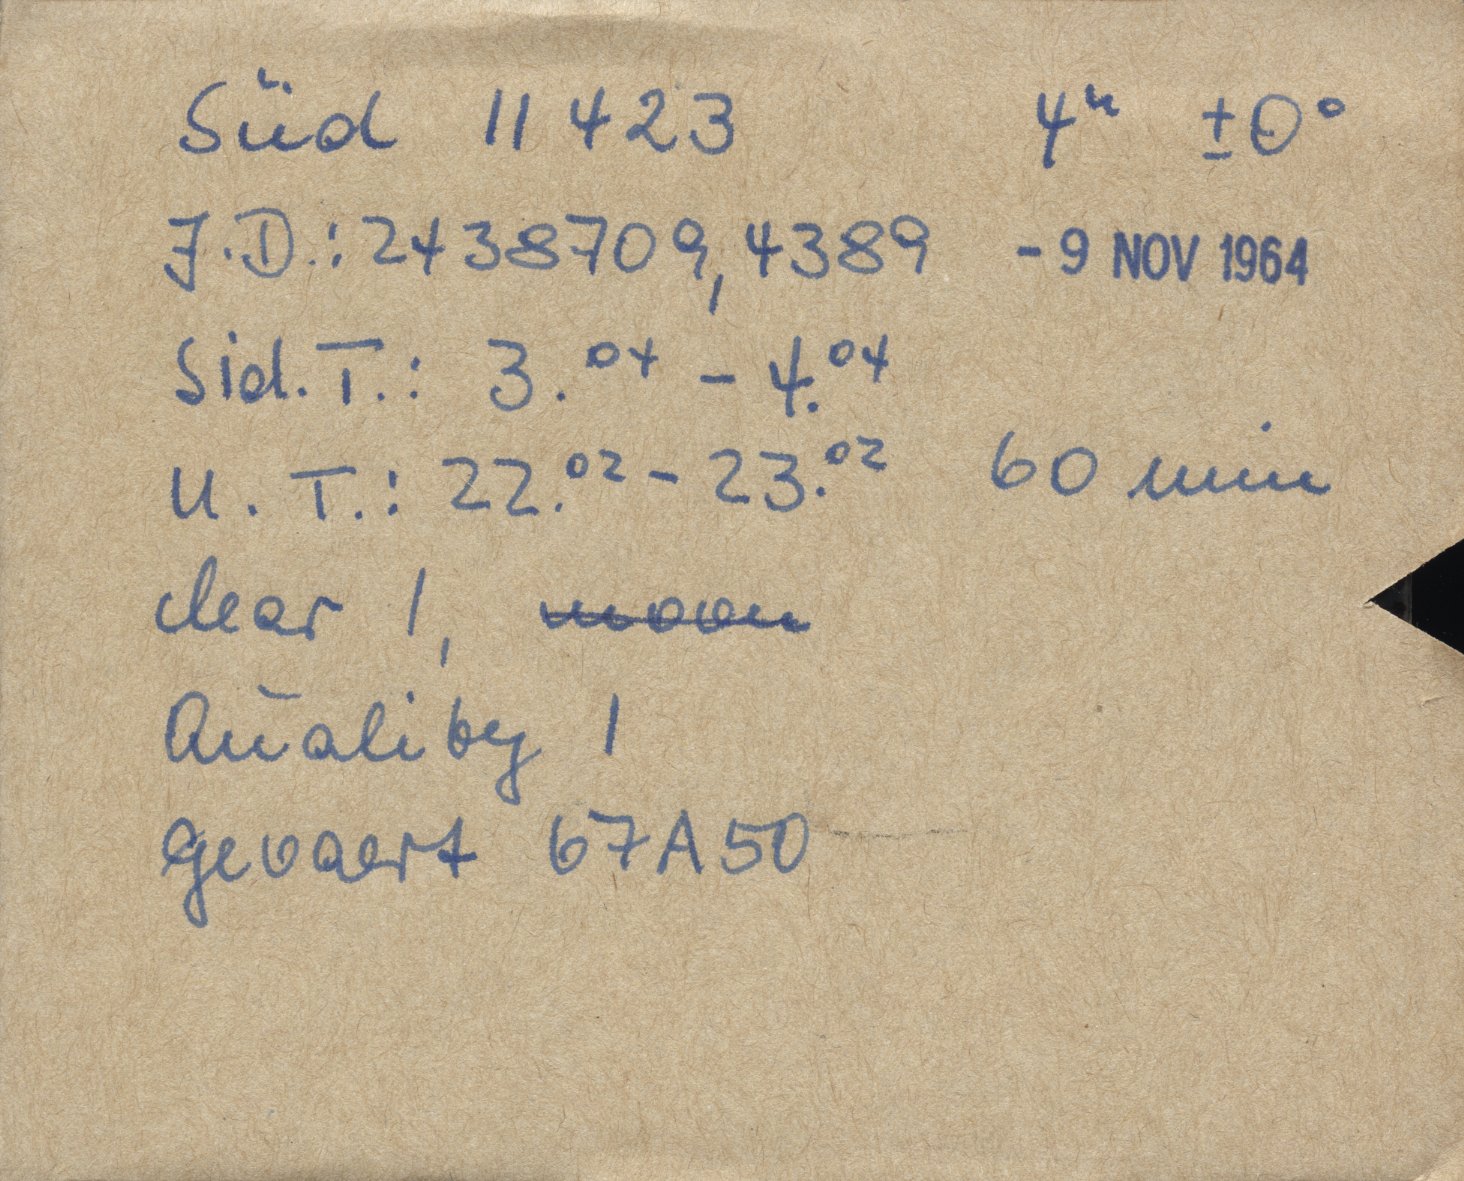 Süd 11423 4ʰ ±0°
J.D.: 2438709,4389 - 9 NOV 1964
Sid. T.: 3.⁰⁴ - 4.⁰⁴
U. T.: 22.⁰² - 23.⁰² 60 min
clear 1, moon
Quality 1
Gevaert 67A50